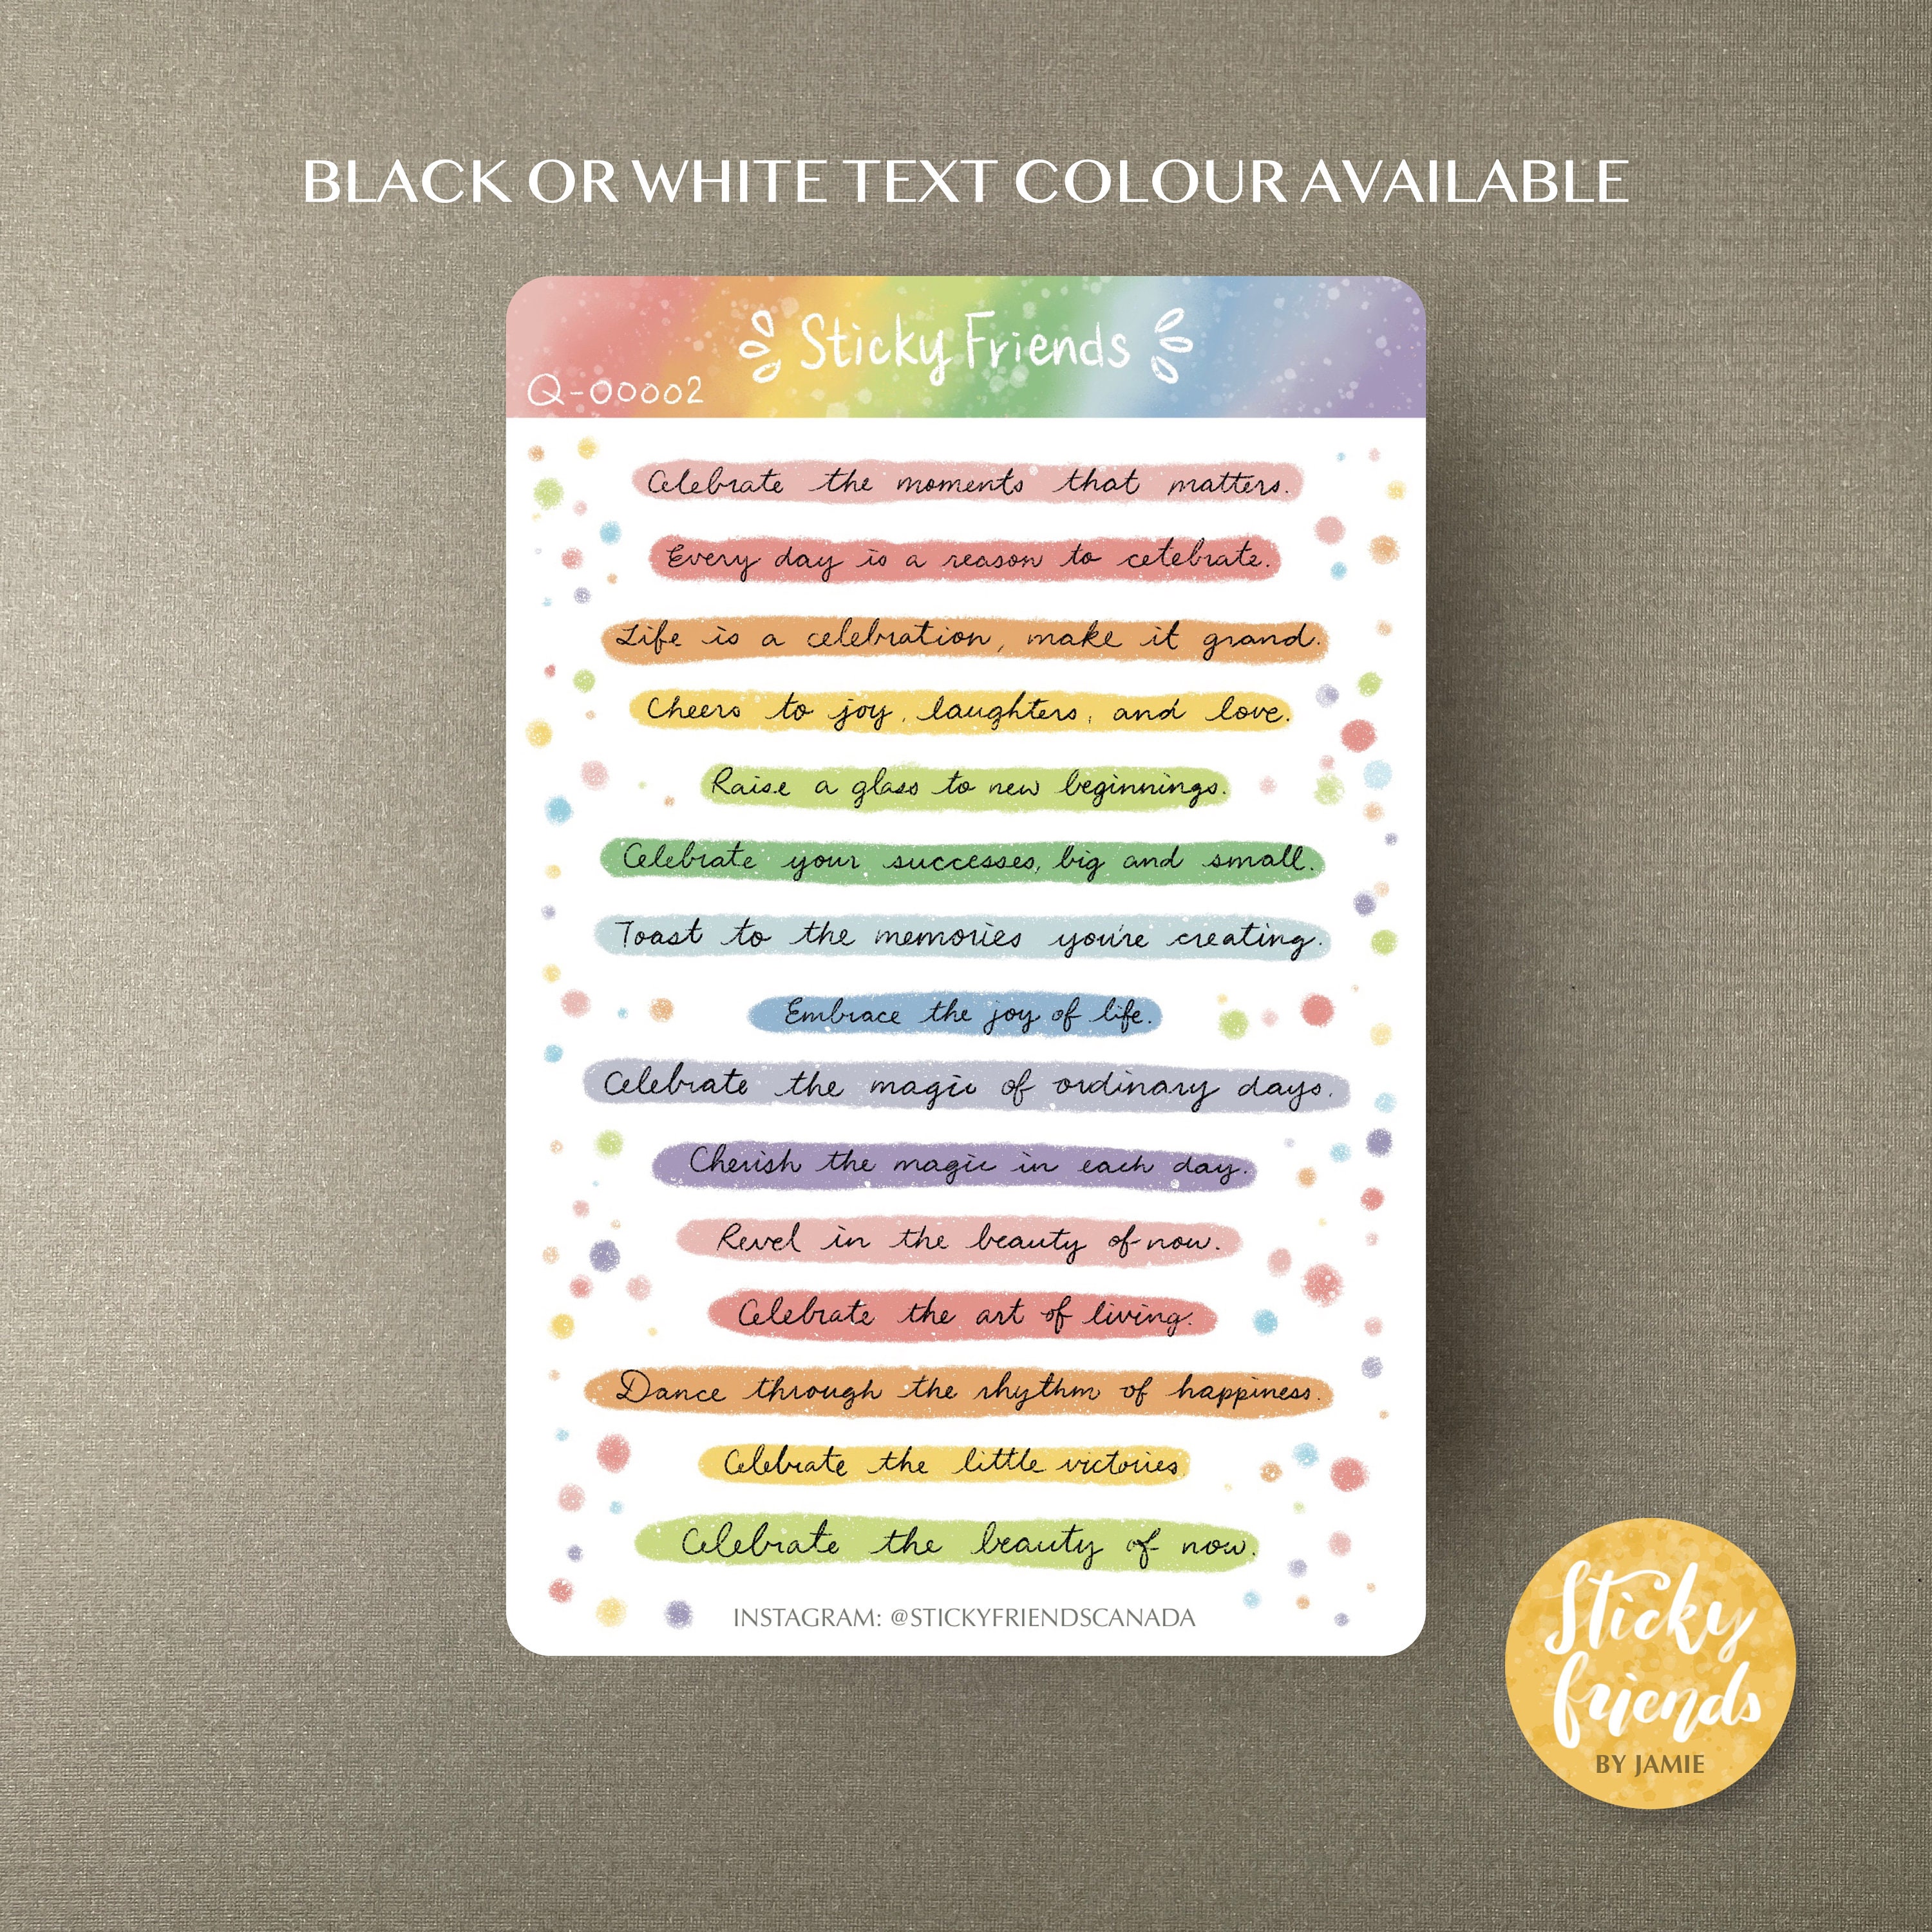 BLACK OR WHITE TEXT COLOUR AVAILABLE
Sticky Friends
Q-00002
Celebrate the moments that matters.
Every day is a reason to cetebrate.
Life is a celebration, make it grand.
Cheers to joy, laughters, and love.
Raise a glass to new beginnings.
Celebrate your successes, big and small.
Toast to the memories you're creating.
Embrace the joy of life.
Celebrate the magic of ordinary days.
Cherish the magic in each day.
Revel in the beauty of now.
Celebrate the art of living.
Dance through the rhythm of happiness.
Celebrate the little victories
Celebrate the beauty of now.
INSTAGRAM: @STICKYFRIENDSCANADA
Sticky
friends
BY JAMIE